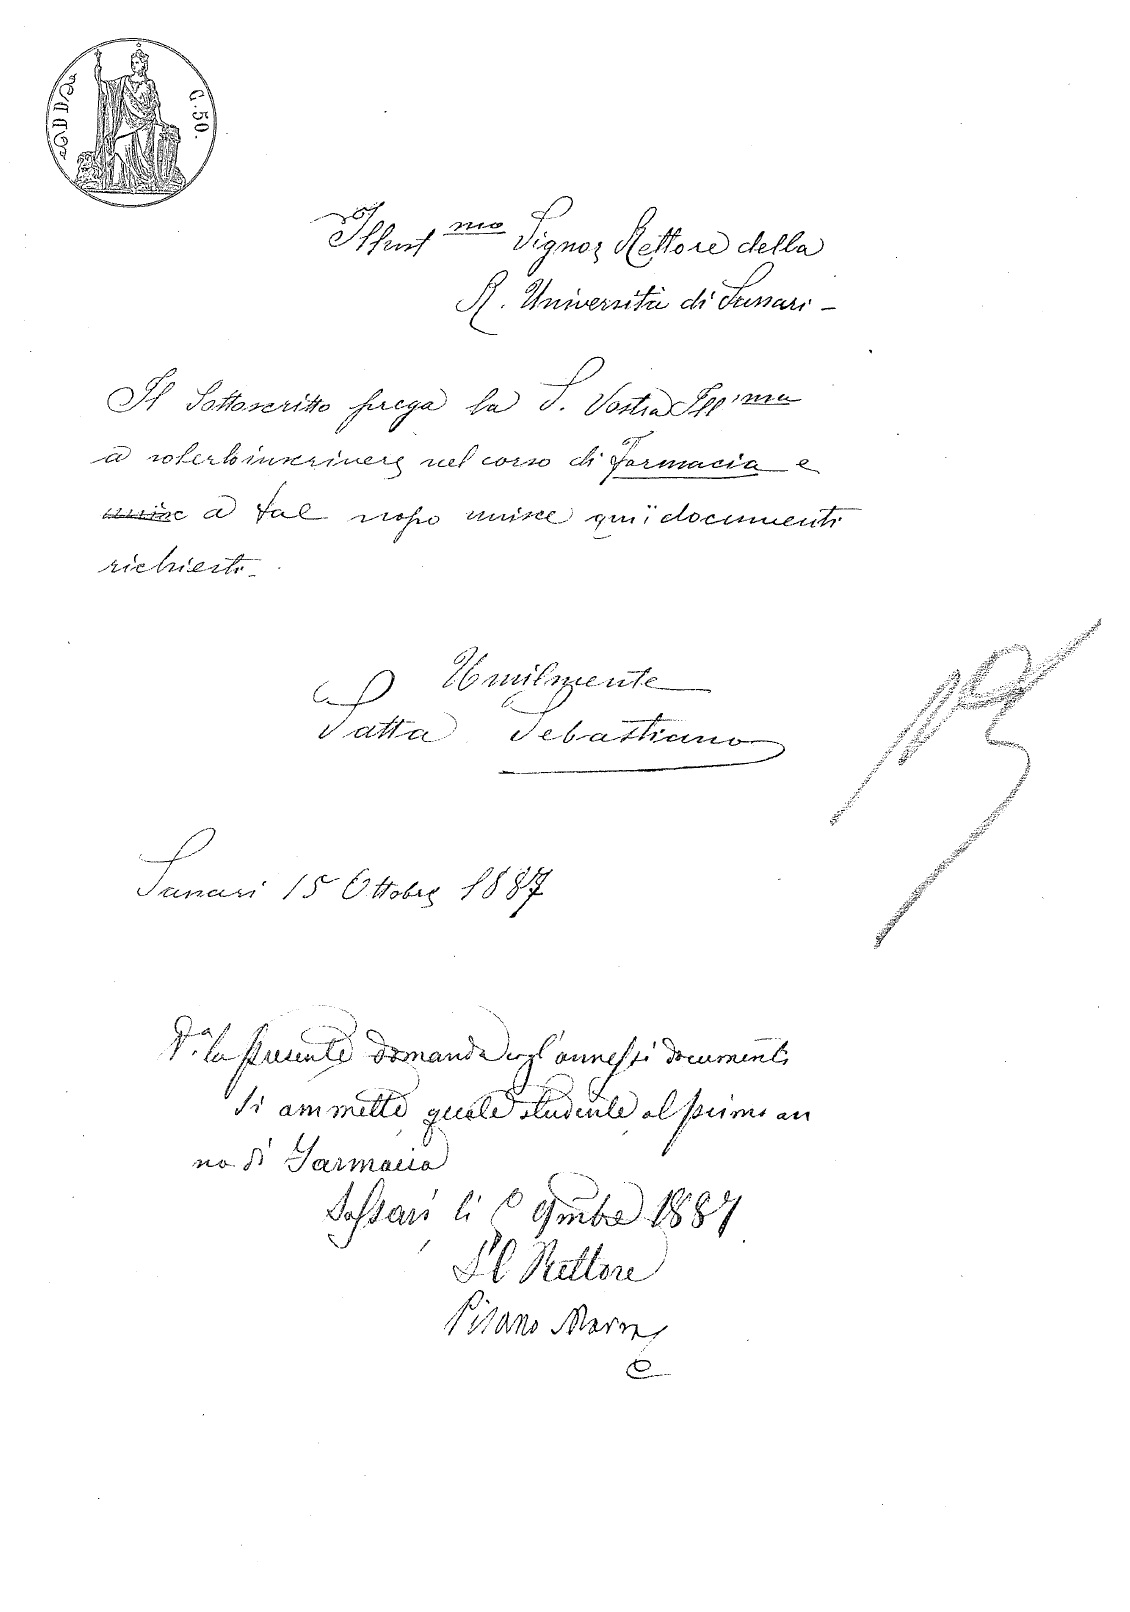 G. 50.
Illust mo Signor Rettore della
R. Università di Sassari -
Il Sottoscritto prega la S. Vostra Ill'ma
a volerlo inscrivere nel corso di Farmacia e
unisce a tal uopo unisce qui i documenti
richiesti.
Umilmente
Satta Sebastiano
Sassari 15 Ottobre 1887
V.a la presente domanda cogl'annessi documenti
Si ammette quale studente al primo an
no di Farmacia
Sassari li 9mbre 1887
Il Rettore
Pisano Marra